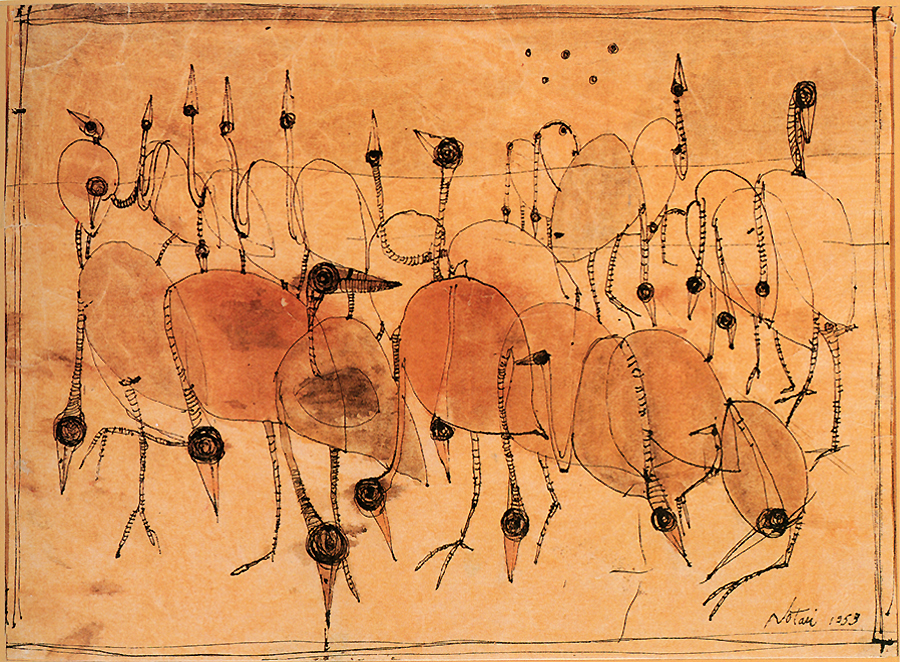 Notari 1953